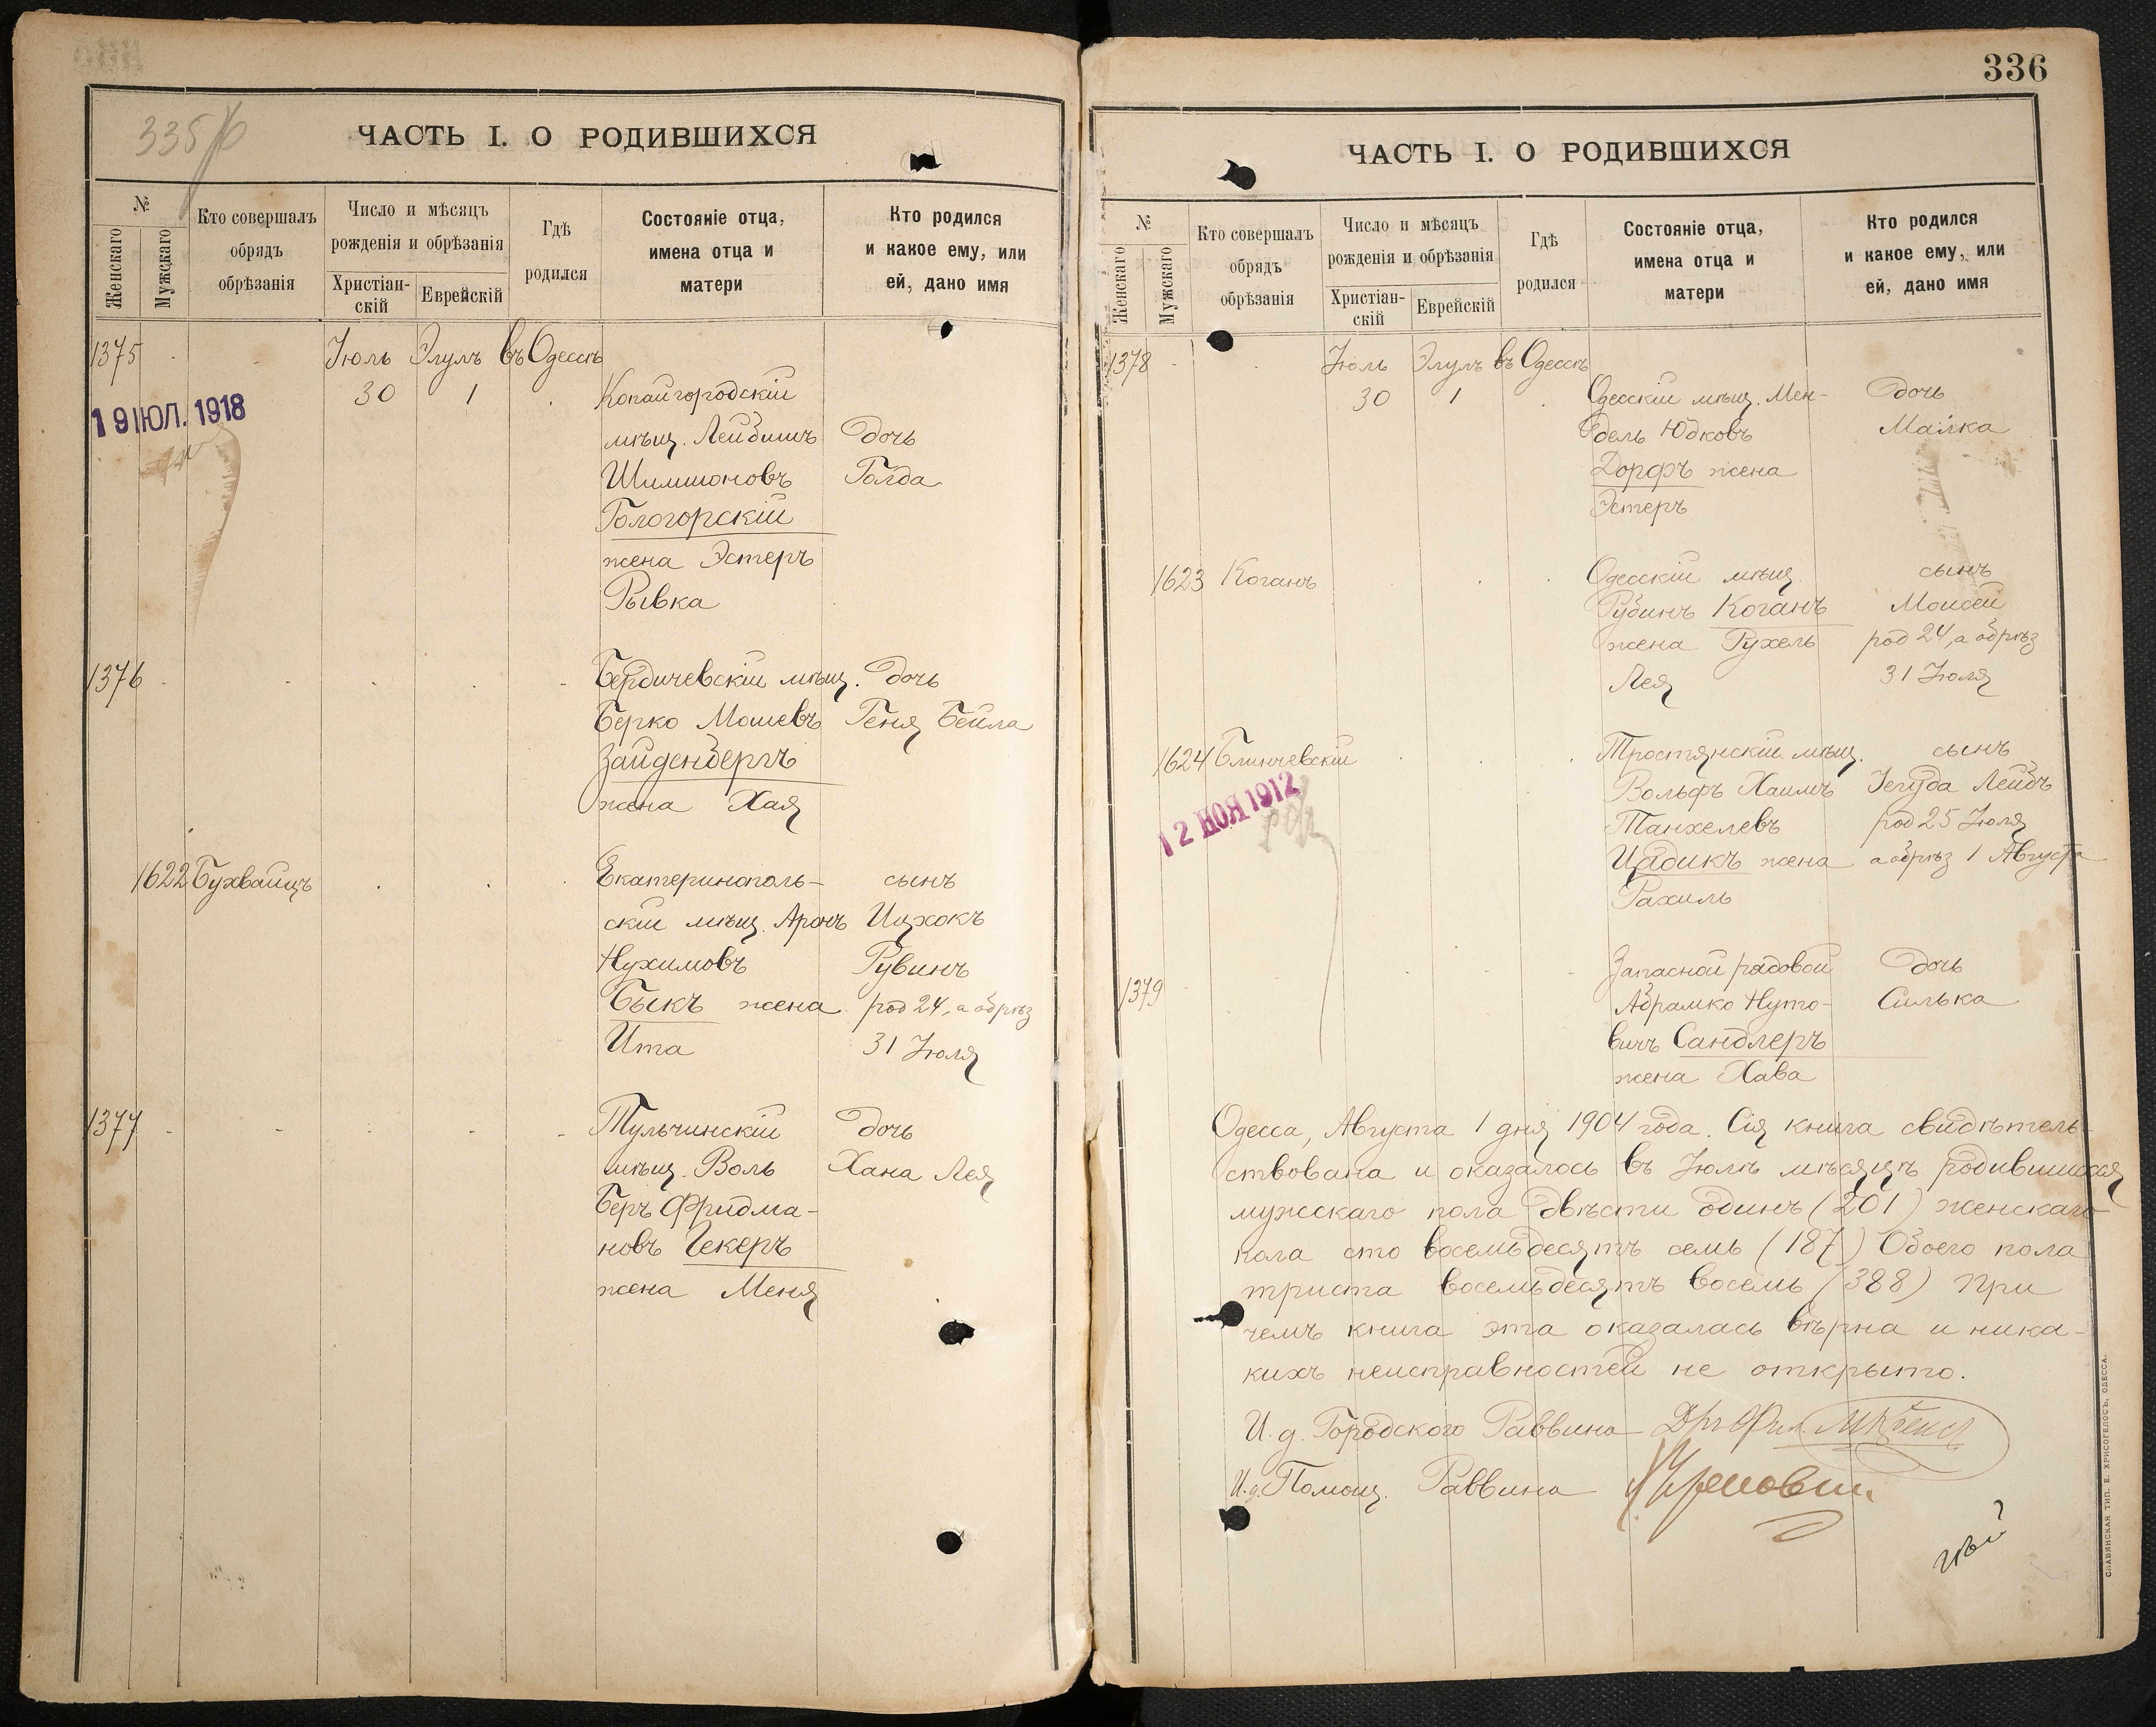 335/б
ЧАСТЬ I. О РОДИВШИХСЯ
№
Женскаго
Мужскаго
Кто совершалъ
обрядъ
обрѣзанія
Число и мѣсяцъ
рожденія и обрѣзанія
Христіан-
скій
Еврейскій
Гдѣ
родился
Состояніе отца,
имена отца и
матери
Кто родился
и какое ему, или
ей, дано имя
1375 Іюль Элулъ въ Одессѣ
30 1 Копайгородскій
19 ІЮЛ. 1918
мѣщ. Лейбишъ дочь
Шимшоновъ Голда
Гологорскій
жена Эстеръ
Рывка
1376 Бердичевскій мѣщ. дочь
Берко Мошевъ Геня Бейла
Зайденбергъ
жена Хая
1622 Бухвайцъ Екатеринополь- сынъ
скій мѣщ. Аронъ Ицхокъ
Нухимовъ Рувинъ
Быкъ жена род 24, а обрѣз
Ита 31 Іюля
1377 Тульчинскій дочь
мѣщ. Воль Хана Лея
Беръ Фридма-
новъ Чекеръ
жена Меня
336
ЧАСТЬ I. О РОДИВШИХСЯ
№
Женскаго
Мужскаго
Кто совершалъ
обрядъ
обрѣзанія
Число и мѣсяцъ
рожденія и обрѣзанія
Христіан-
скій
Еврейскій
Гдѣ
родился
Состояніе отца,
имена отца и
матери
Кто родился
и какое ему, или
ей, дано имя
1378 Іюль Элулъ въ Одессѣ
30 1 Одесскій мѣщ. Мен- дочь
дель Юдковъ Малка
Дорфъ жена
Эстеръ
1623 Коганъ Одесскій мѣщ. сынъ
Рубинъ Коганъ Моисей
жена Рухель род 24, а обрѣз
Лея 31 Іюля
1624 Блинчевскій Тростянскій мѣщ. сынъ
12 НОЯ 1912
Вольфъ Хаимъ Іегуда Лейбъ
Танхелевъ род 25 Іюля
Цадикъ жена а обрѣз 1 Августа
Рахиль
1379 Запасной рядовой дочь
Абрамко Нуто- Силька
вичъ Сандлеръ
жена Хава
Одесса, Августа 1 дня 1904 года. Сія книга свидѣтель-
ствована и оказалось въ Іюлѣ мѣсяцѣ родившихся
мужскаго пола двѣсти одинъ (201) женскаго
пола сто восемьдесятъ семь (187) Обоего пола
триста восемьдесятъ восемь (388) При
чемъ книга эта оказалась вѣрна и ника-
кихъ неисправностей не открыто.
И. д. Городского Раввина
И.д. Помощ. Раввина
СЛАВЯНСКАЯ ТИП. Е. ХРИСОГЕЛОСЪ, ОДЕССА.